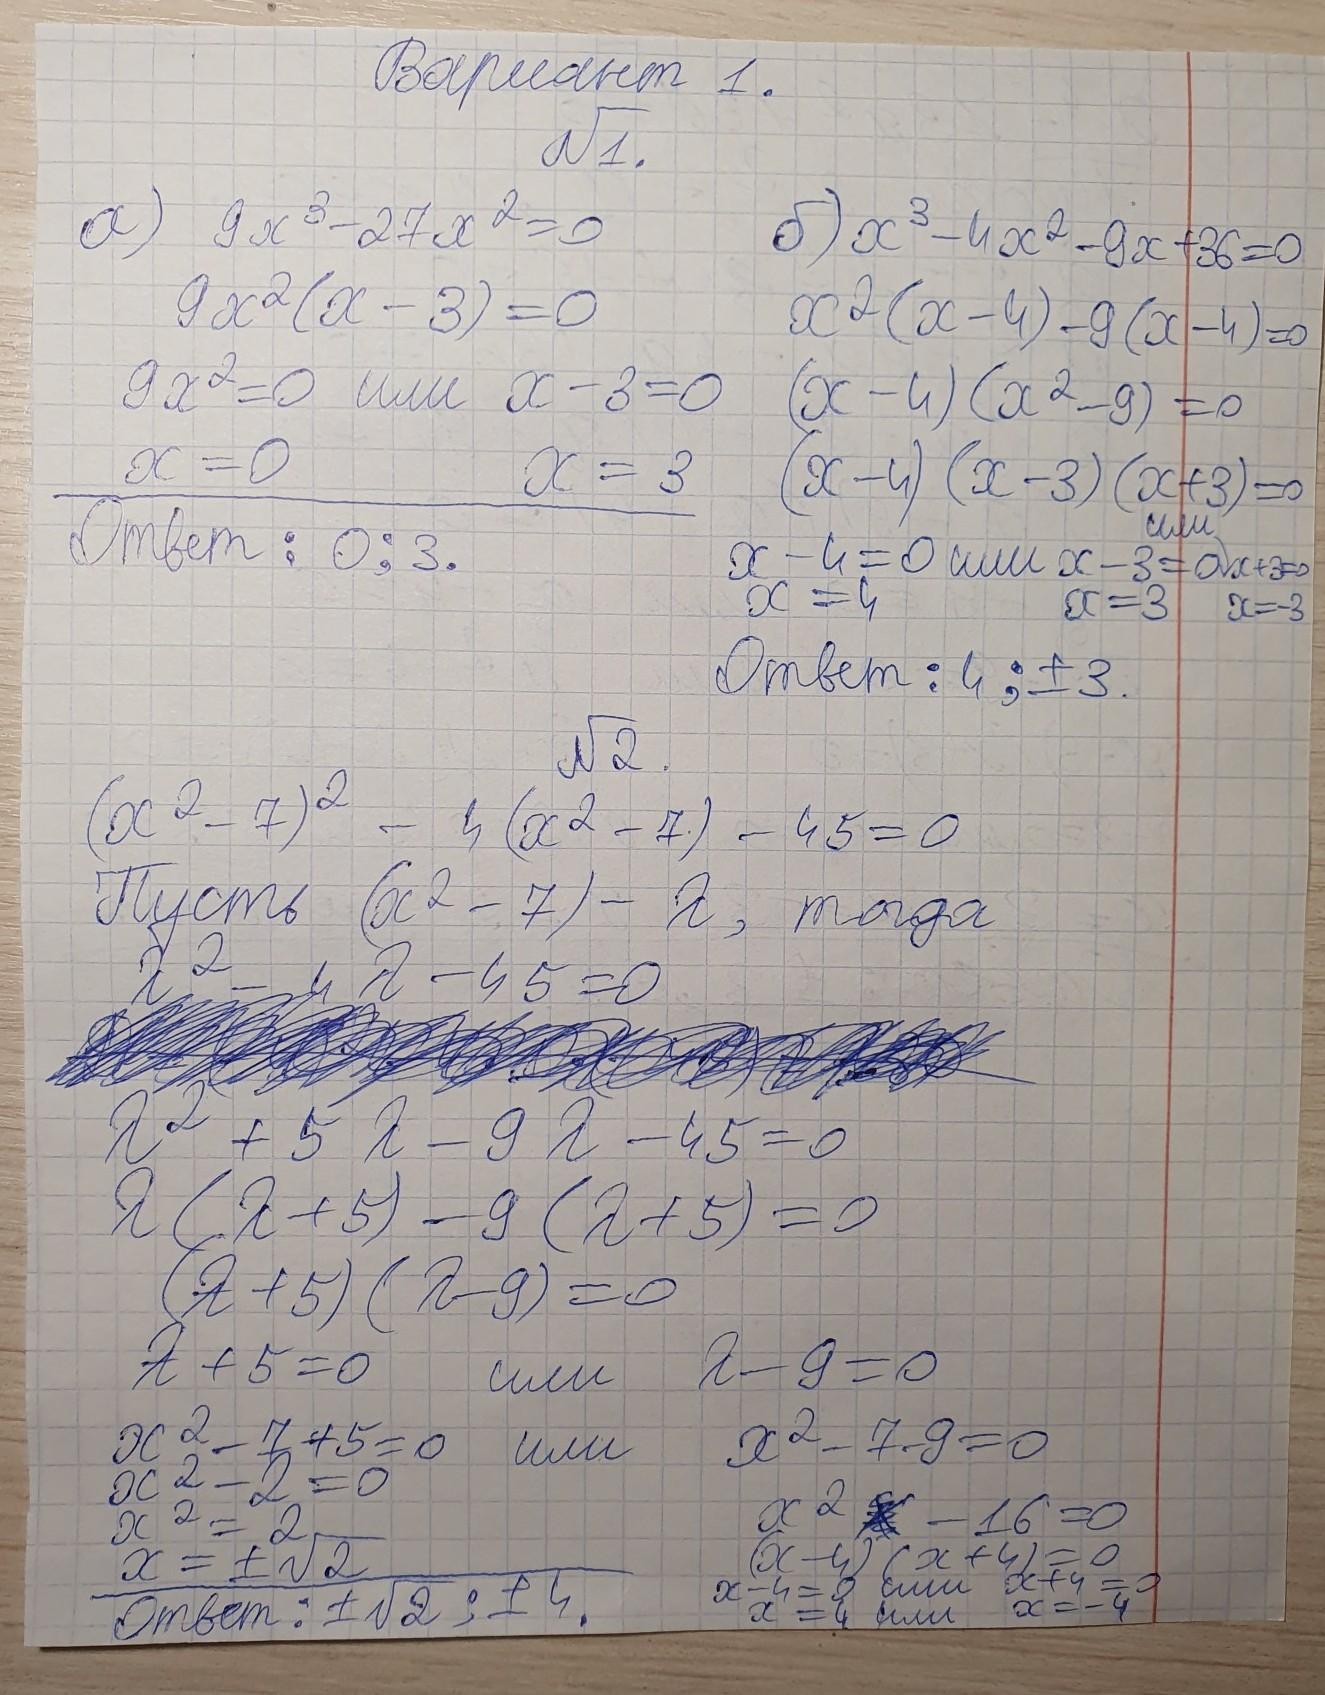 Вариант 1.
№1.
а) 9x³-27x²=0
9x²(x-3)=0
9x²=0 или x-3=0
x=0 x=3
Ответ: 0;3.
б) x³-4x²-9x+36=0
x²(x-4)-9(x-4)=0
(x-4)(x²-9)=0
(x-4)(x-3)(x+3)=0
x-4=0 или x-3=0 или x+3=0
x=4 x=3 x=-3
Ответ: 4;±3.
№2.
(x²-7)² - 4(x²-7) - 45=0
Пусть (x²-7) - λ, тогда
λ² - 4λ - 45=0
λ² + 5λ - 9λ - 45=0
λ(λ+5) - 9(λ+5)=0
(λ+5)(λ-9)=0
λ+5=0 или λ-9=0
x²-7+5=0 или x²-7-9=0
x²-2=0
x²=2
x=±√2
x² - 16=0
(x-4)(x+4)=0
x-4=0 или x+4=0
x=4 или x=-4
Ответ: ±√2;±4.